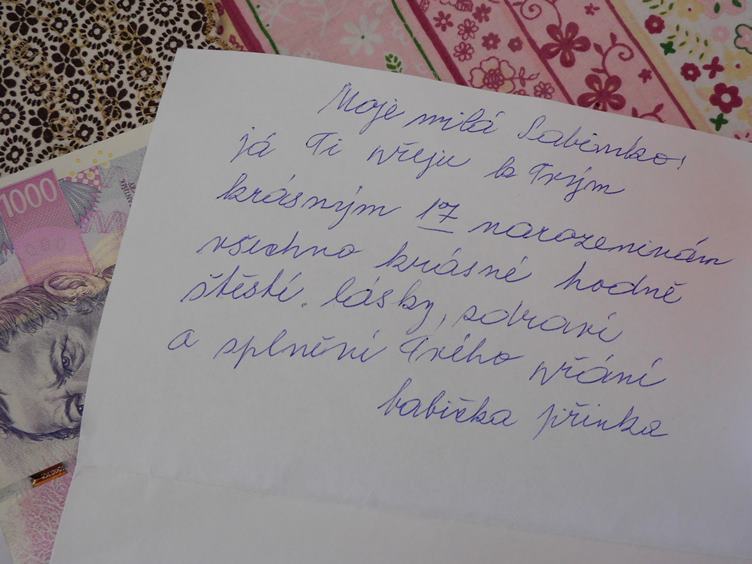 1000
Moje milá Sabinko!
já Ti přeju k Tvým
krásným 17 narozeninám
všechno krásné hodně
štěstí, lásky, zdraví
a splnění Tvého přání
babička Jiřinka